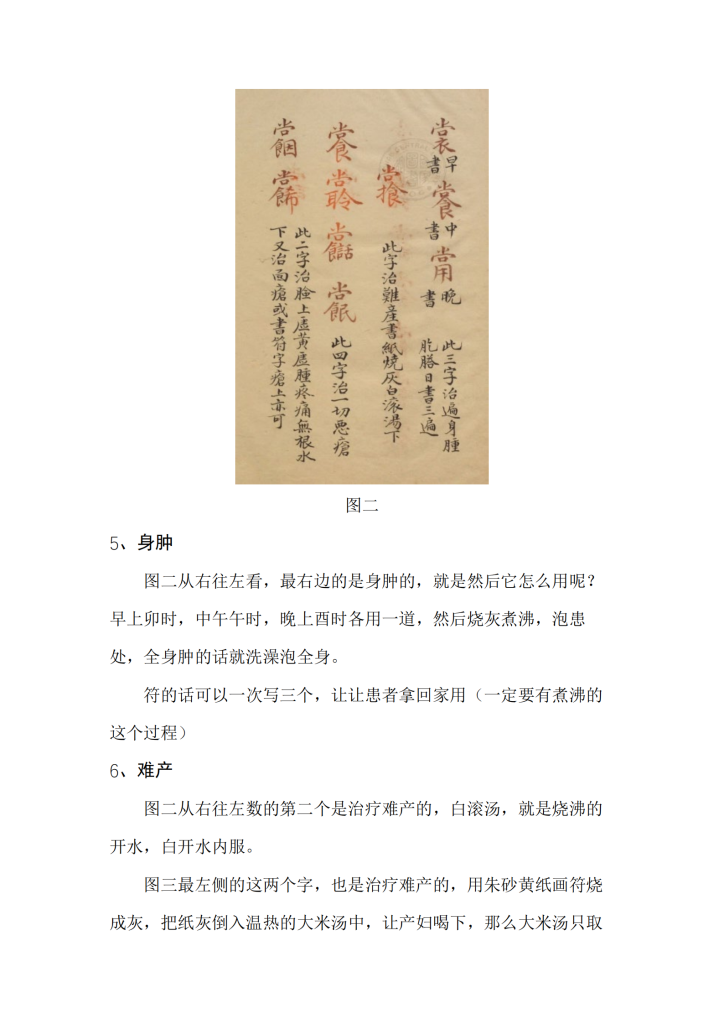 早書
中書
晚書
此三字治遍身腫
肐膊日書三遍
此字治難產書紙燒灰白滾湯下
此四字治一切惡瘡
此二字治臉上虛黃虛腫疼痛無根水
下又治面瘡或書符字瘡上亦可
图二
5、身肿
图二从右往左看，最右边的是身肿的，就是然后它怎么用呢？
早上卯时，中午午时，晚上酉时各用一道，然后烧灰煮沸，泡患
处，全身肿的话就洗澡泡全身。
符的话可以一次写三个，让让患者拿回家用（一定要有煮沸的
这个过程）
6、难产
图二从右往左数的第二个是治疗难产的，白滚汤，就是烧沸的
开水，白开水内服。
图三最左侧的这两个字，也是治疗难产的，用朱砂黄纸画符烧
成灰，把纸灰倒入温热的大米汤中，让产妇喝下，那么大米汤只取